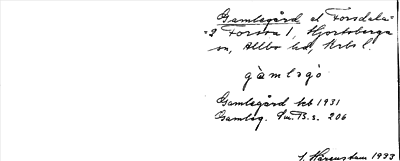 Gamlegård el Forsdala=
=2 Forsen 1, Hjortsberga
sn, Allbo hd, Krbs l.
gàmlsgò
Gamlegård kb 1931
Gamleg. Sm. B. s. 206
1933